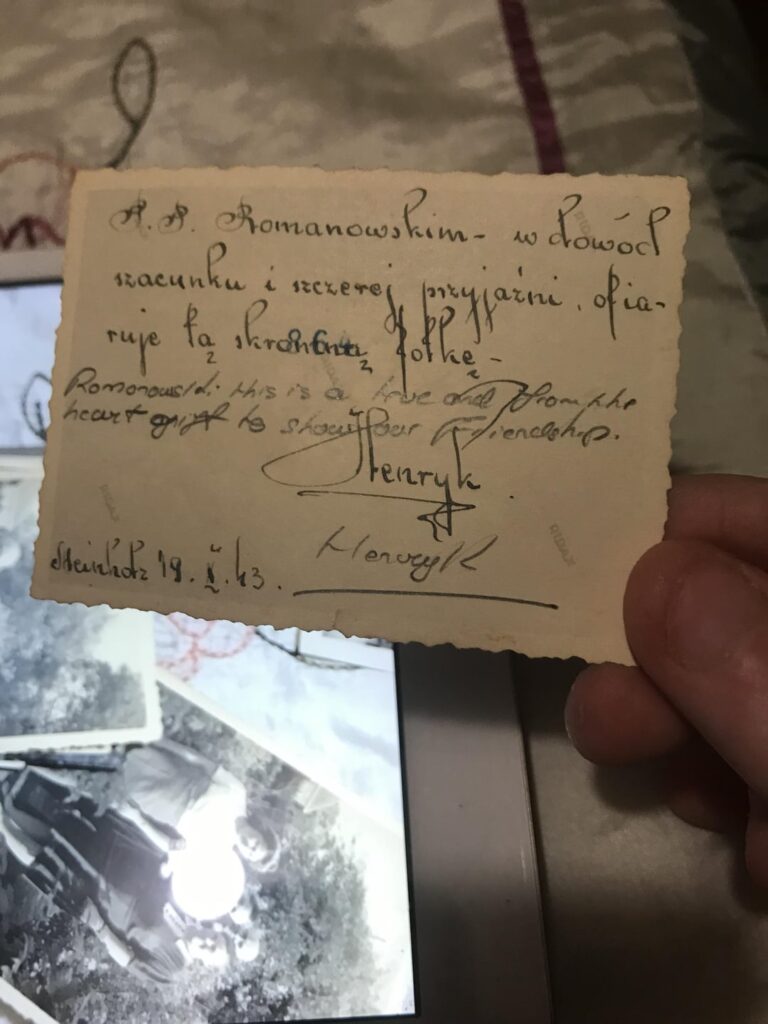 P. P. Romanowskim - w dowód
szacunku i szczerej przyjaźni, ofia-
ruje tą skromną fotkę -
Romonowski: this is a true and from the
heart gift to show our Friendship.
Henryk
Henryk
Steinholz 19. X. 43.
RIDAX
RIDAX